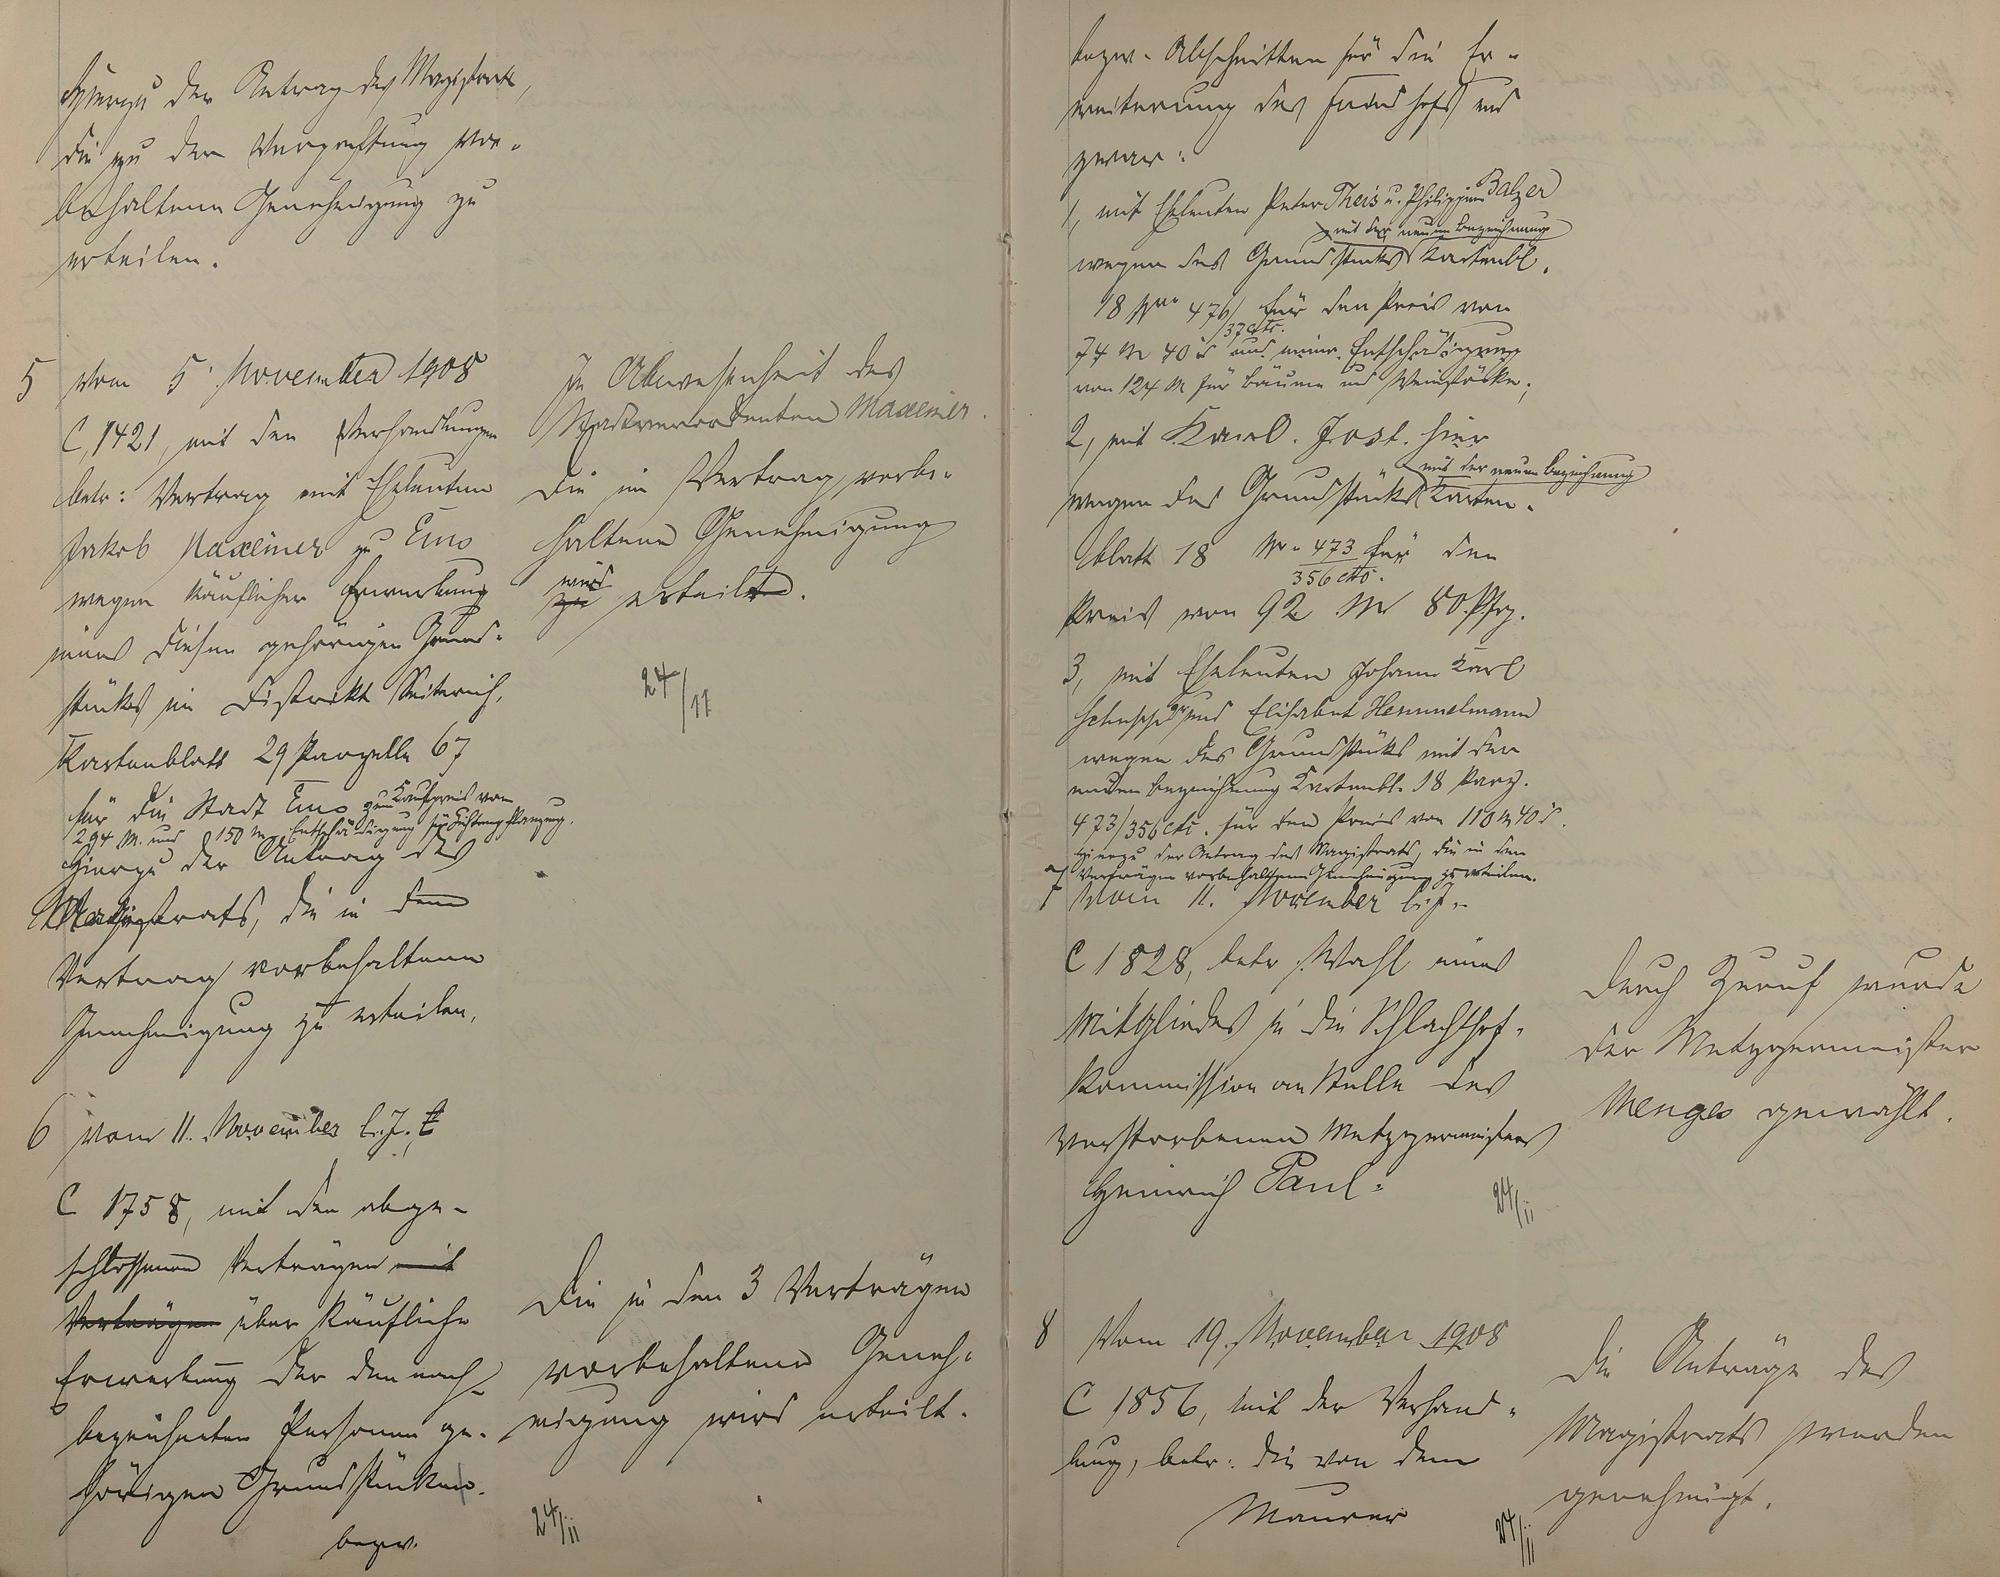 Hierzu der Antrag des Magistrats,
die zu der Verpachtung vor-
behaltene Genehmigung zu
erteilen.
5 vom 5. November 1908
C 1421, mit den Verhandlungen
betr: Vertrag mit Eheleuten
Jakob Maxeiner zu Ems
wegen käuflicher Erwerbung
eines diesen gehörigen Grund-
stücks im Distrikt
Kartenblatt 29 Parzelle 67
für die Stadt Ems zum Kaufpreis von
294 M. und 150 M. Entschädigung für
Hierzu der Antrag des
Magistrats, die in dem
Vertrag vorbehaltene
Genehmigung zu erteilen.
In Abwesenheit des
Stadtverordneten Maxeiner.
Die im Vertrag vorbe-
haltene Genehmigung
wird
zu erteilt.
24/11
6 vom 11. November l. J.
C 1758, mit den abge-
schlossenen Verträgen mit
Verträgen über käufliche
Erwerbung der den nach-
bezeichneten Personen ge-
hörigen Grundstücken.
bezw.
Die in den 3 Verträgen
vorbehaltene Geneh-
migung wird erteilt.
24/11
bezw. Abschnitten für die Er-
weiterung des Friedhofs und
zwar:
1, mit Eheleuten Peter Theis u. Philippine Balzer
mit der neuen Bezeichnung
wegen des Grundstücks Kartenbl.
18 Nr. 476/37 etc. für den Preis von
74 M 40 und einer Entschädigung
von 124 M für Bäume und Weinstöcke;
2, mit Karl Jost hier
mit der neuen Bezeichnung
wegen des Grundstücks Karten-
blatt 18 Nr. 473/356 etc. für den
Preis von 92 M 80 Pfg.
3, mit Eheleuten Johann Karl
und Elisabet Hemmelmann
wegen des Grundstücks mit der
neuen Bezeichnung Kartenbl. 18 Parz.
473/356 etc. für den Preis von 110 M 40
Hierzu der Antrag des Magistrats, die in den
Verträgen vorbehaltene Genehmigung zu erteilen.
7 Vom 11. November l. J.
C 1828, betr. Wahl eines
Mitgliedes in die Schlachthof-
Kommission an Stelle des
verstorbenen Metzgermeisters
Heinrich Paul.
24/11
Durch Zuruf wurde
der Metzgermeister
Menges gewählt.
8 Vom 19. November 1908
C 1856, mit der Verhand-
lung, betr. die von dem
Maurer
24/11
Die Anträge des
Magistrats werden
genehmigt.